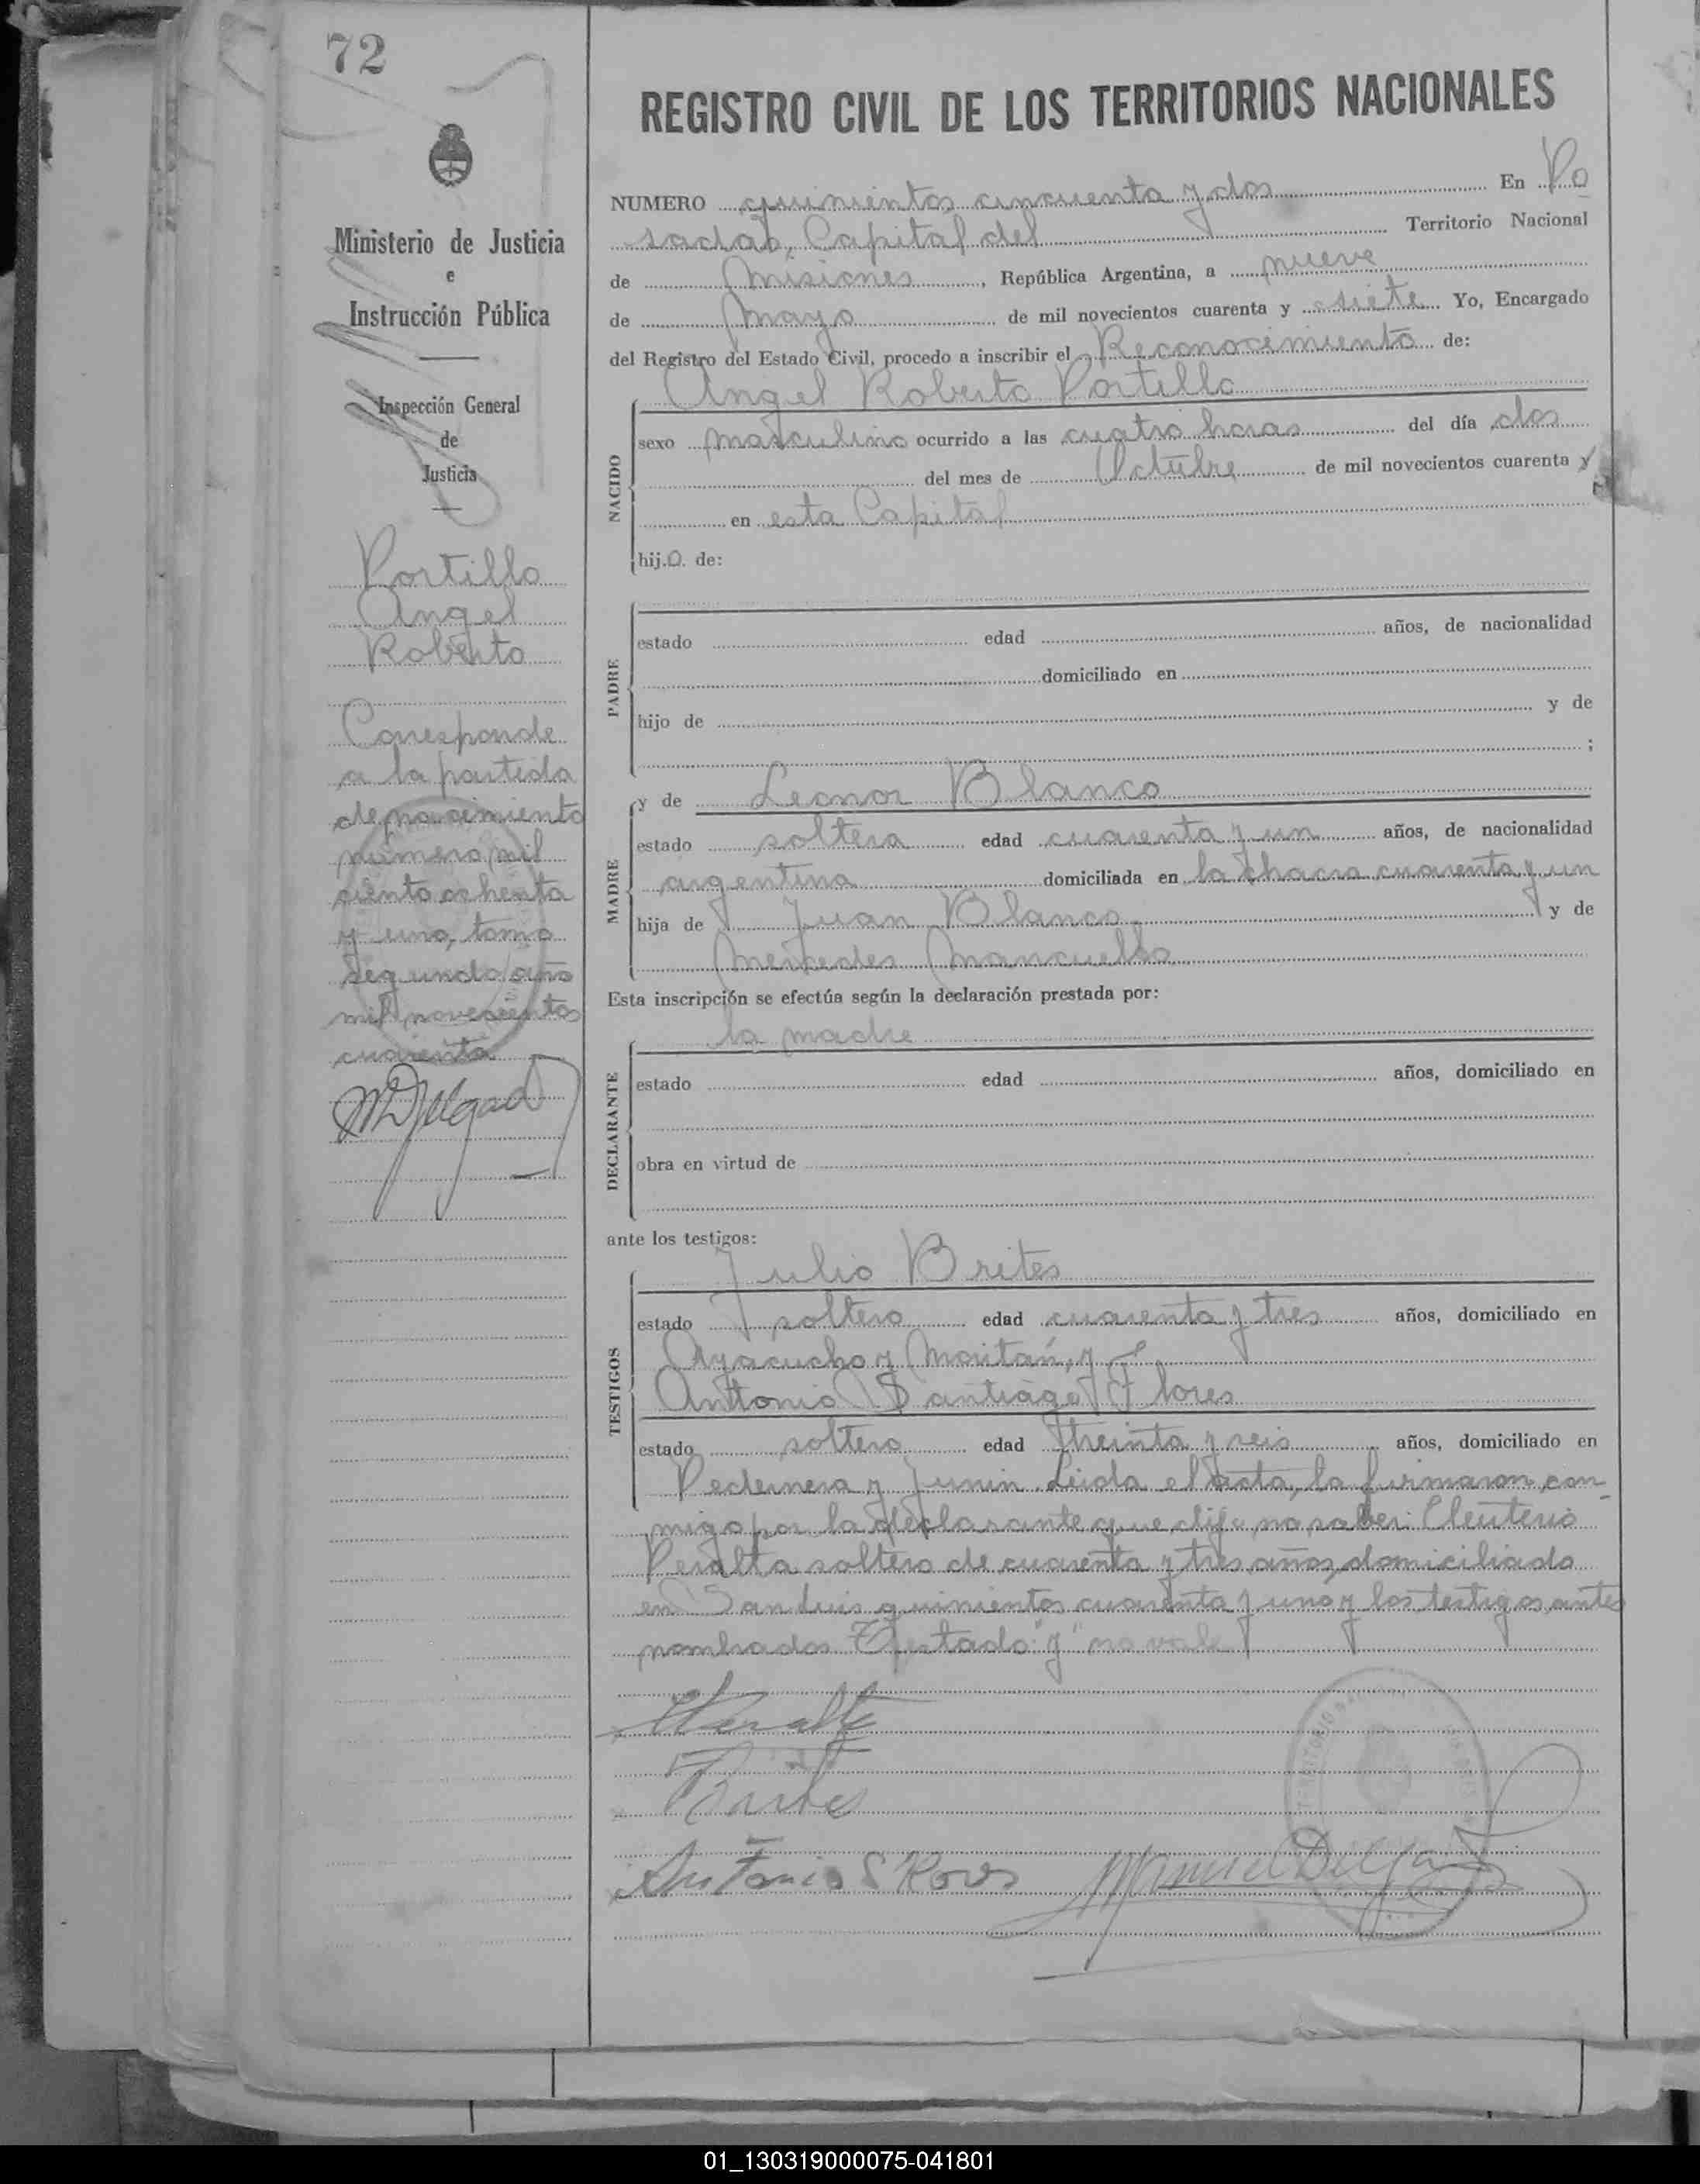 72
Ministerio de Justicia
e
Instrucción Pública
Inspección General
de
Justicia
Portillo
Angel
Roberto
Corresponde
a la partida
de nacimiento
número mil
ciento ochenta
y uno, tomo
segundo año
mil novecientos
cuarenta
MDelgado
REGISTRO CIVIL DE LOS TERRITORIOS NACIONALES
NUMERO quinientos cincuenta y dos En Po
sadas, Capital del Territorio Nacional
de Misiones, República Argentina, a nueve
de Mayo de mil novecientos cuarenta y siete Yo, Encargado
del Registro del Estado Civil, procedo a inscribir el Reconocimiento de:
Angel Roberto Portillo
NACIDO
sexo masculino ocurrido a las cuatro horas del día dos
del mes de Octubre de mil novecientos cuarenta y
en esta Capital
hijo de:
PADRE
estado edad años, de nacionalidad
domiciliado en
hijo de y de
;
MADRE
y de Leonor Blanco
estado soltera edad cuarenta y un años, de nacionalidad
argentina domiciliada en la chacra cuarenta y un
hija de Juan Blanco y de
Mercedes Mancuello
Esta inscripción se efectúa según la declaración prestada por:
la madre
DECLARANTE
estado edad años, domiciliado en
obra en virtud de
ante los testigos:
Julio Brites
TESTIGOS
estado soltero edad cuarenta y tres años, domiciliado en
Ayacucho y Moritán, y
Anttonio Santiago Flores
estado soltero edad threinta y seis años, domiciliado en
Pedernera y Junin. Leida el acta, la firmaron con-
migo por la declarante que dijo no saber: Eleuterio
Peralta soltero de cuarenta y tres años, domiciliado
en San Luis quinientos cuarenta y uno y los testigos antes
nombrados Testado "y" no vale
Peralta
Brites
Antonio S Flores
Manuel Delgado
01_130319000075-041801